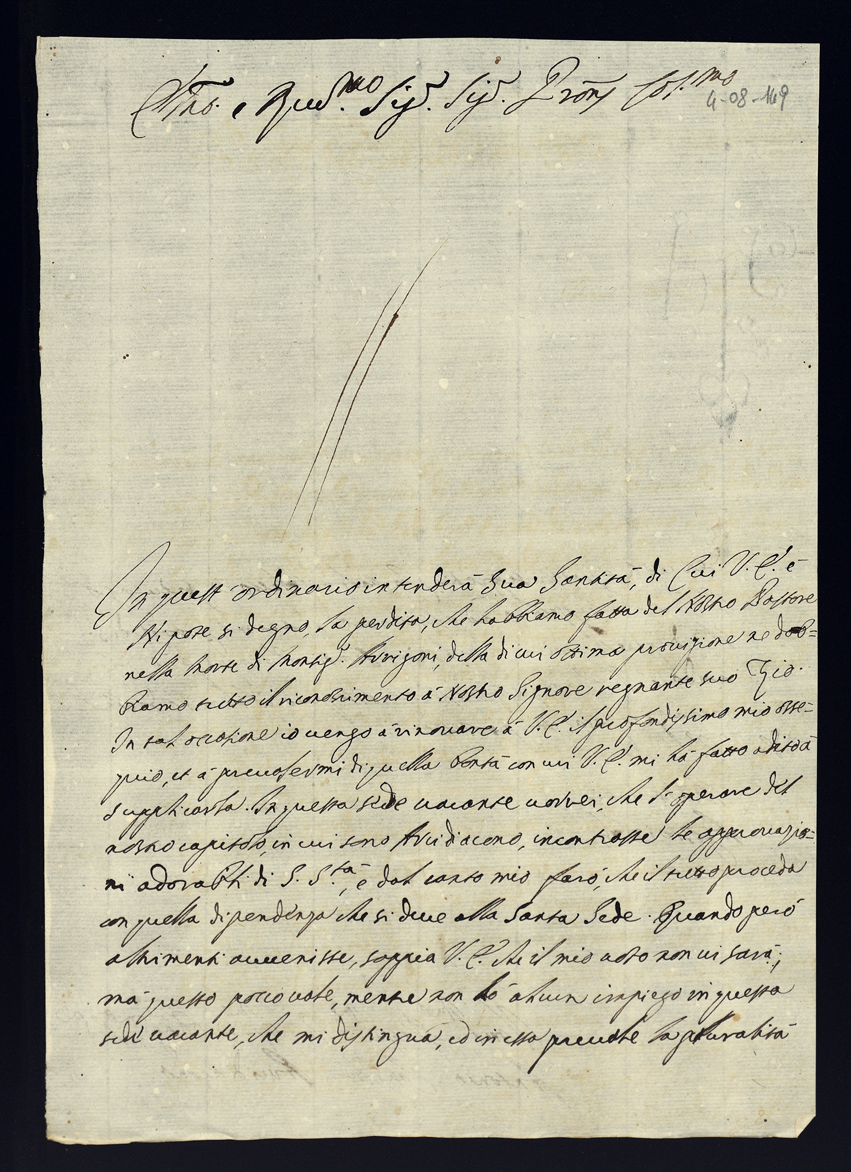 Ill.mo e Reud.mo Sig.r Sig.r Pron Col.mo
4-08-149
In quest'ordinario intenderà Sua Santità, di Cui V.E. è
Nipote si degno, la perdita, che habbiamo fatta del Nostro Pastore
nella morte di Monsig.r Arrigoni, della di cui ottima provisione ne dob=
biamo tutto il riconoscimento à Nostro Signore regnante suo Zio.
In tal occasione io vengo à rinovare à V.E. il profondissimo mio osse=
quio, et à prevalermi di quella bontà con cui V.E. mi hà fatto adito à
supplicarla. In questa sede vacante vorrei, che l'operare del
nostro capitolo, in cui sono Arcidiacono, incontrasse le approvazio=
ni adorabili di S. S.tà, e dal canto mio farò, che il tutto proceda
con quella dipendenza che si deve alla Santa Sede. Quando però
altrimenti avvenisse, sappia V.E. che il mio voto non vi sarà;
mà questo poco vale, mentre non hò alcun impiego in questa
sede vacante, che mi distingua, ed in essa prevale la pluralità